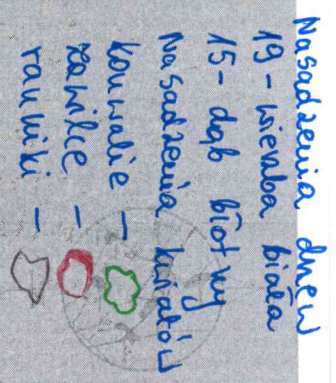 Nasadzenia drzew
19 - wierzba biała
15 - dąb błotny
Nasadzenia kwiatów
konwalie -
zawilce -
ranniki -